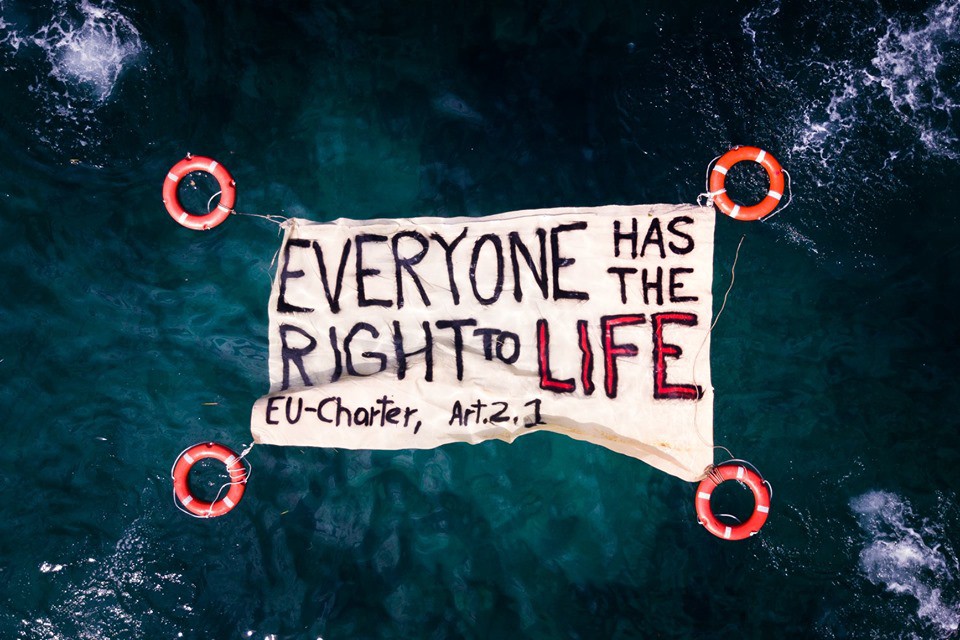 EVERYONE HAS THE
RIGHT TO LIFE
EU-Charter, Art.2.1